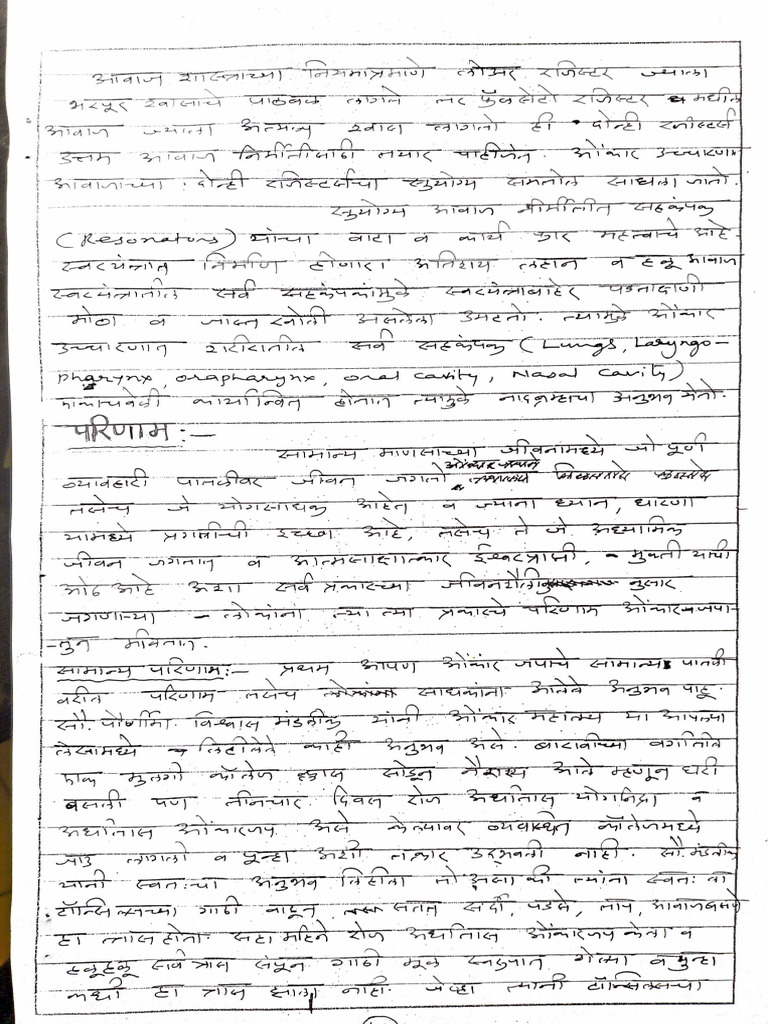 आवाज शास्त्राच्या नियमाप्रमाणे लोअर रजिस्टर ज्याला
भरपूर श्वासाचे पाठबळ लागते तर फॅल्सेटो रजिस्टर मधील
आवाज ज्याला अत्यल्प श्वास लागतो ही दोन्ही रजीस्टर्स
उत्तम आवाज निर्मितीसाठी तयार पाहीजेत. ओंकार उच्चारणात
आवाजाच्या दोन्ही रजिस्टर्सचा सुयोग्य समतोल साधला जातो.
सुयोग्य आवाज नीर्मितीत सहकंपक
(Resonators) यांचा वाटा व कार्य फार महत्वाचे आहे.
स्वरयंत्रात निर्माण होणारा अतिशय लहान व हळू आवाज
स्वरयंत्रातील सर्व सहकंपकांमुळे स्वरयंत्राबाहेर पडताक्षणी
मोठा व जास्त खोली असलेला उमटतो. त्यामुळे ओंकार
उच्चारणात शरीरातील सर्व सहकंपक (Lungs, Laryngo-
pharynx, orapharynx, oral cavity, Nasal cavity)
एकाचवेळी कार्यान्वित होतात त्यामुळे नादब्रम्हाचा अनुभव येतो.
परिणाम :-
सामान्य माणसाच्या जीवनामध्ये जो पूर्ण
व्यावहारी पातळीवर जीवन जगतो
तसेच जे योगसाधक आहेत व ज्यांना ध्यान, धारणा
यामध्ये प्रगतीची इच्छा आहे, तसेच ते जे अध्यात्मिक
जीवन जगतात व आत्मसाक्षात्कार ईश्वरप्राप्ती, - मुक्ती यांची
ओढ आहे अशा सर्व प्रकारच्या जीवनशैली नुसार
जगणाऱ्या - लोकांना त्या त्या प्रकारचे परिणाम ओंकारजपा-
-तून मिळतात.
सामान्य परिणाम :- प्रथम आपण ओंकार जपाचे सामान्य पातळी
वरील परिणाम तसेच साधकांना आलेले अनुभव पाहू.
सौ. पौर्णिमा विश्वास मंडलीक यांनी ओंकार महात्म्य या आपल्या
लेखामध्ये लिहीलेले काही अनुभव असे. बारावीच्या वर्गातील
एक मुलगी कॉलेज क्लास सोडून नैराश्य आले म्हणून घरी
बसली पण तीनचार दिवस रोज अर्धातास योगनिद्रा व
अर्धातास ओंकारजप असे केल्यावर व्यवस्थित कॉलेजमध्ये
जाउ लागली व पून्हा अशी तक्रार उद्भवली नाही. सौ. मंडलीक
यांनी स्वतःचा अनुभव लिहीला तो असा की त्यांना स्वतः ला
टॉन्सिल्सच्या गाठी वाढून सतत सर्दी, पडसे, ताप, आवाज बसणे
हा त्रास होता. सहा महिने रोज अर्धातास ओंकारजप केला व
हळूहळू सर्व त्रास संपून गाठी मूळ स्वरुपात गेल्या व पुन्हा
कधी हा त्रास झाला नाही. जेव्हा त्यांनी टॉन्सिल्सचा